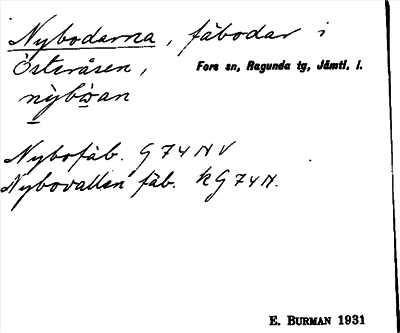 Nybodarna, fäbodar i
Österåsen, Fors sn, Ragunda tg, Jämtl. l.
nỳbòan
Nybofäb. G 74 N V
Nybovallen fäb. k G 74 N.
E. BURMAN 1931